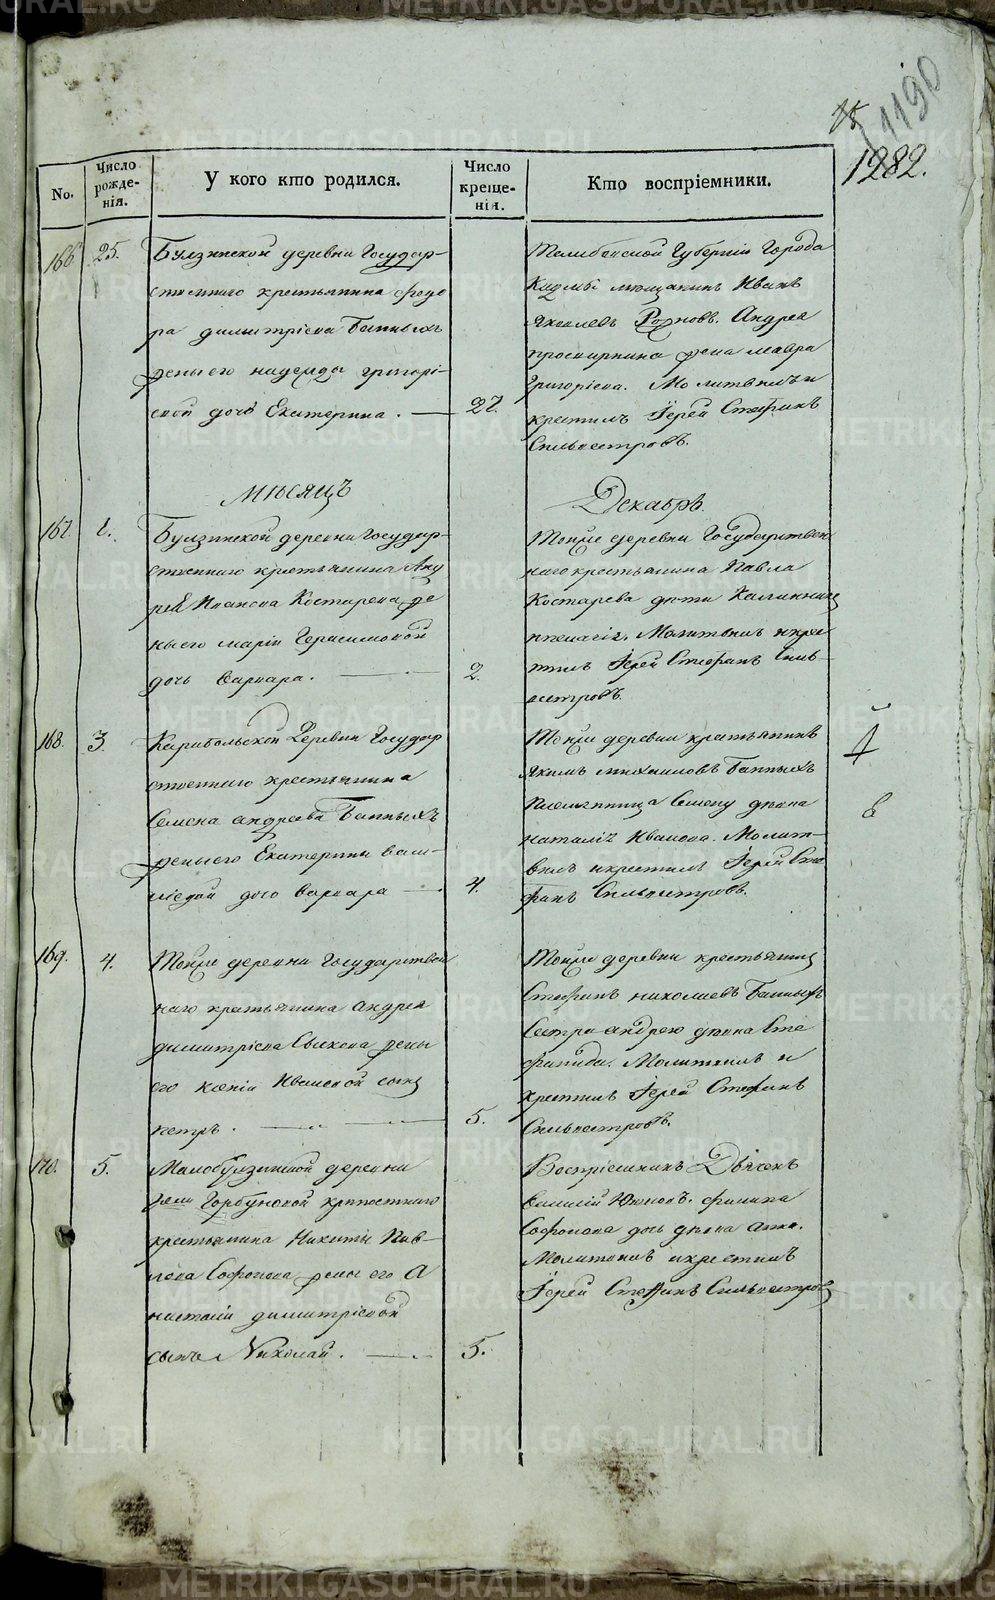 1190
1282.
No.
Число рожде-нія.
У кого кто родился.
Число креще-нія.
Кто воспріемники.
166 25.
Булзинской деревни Государ-
ственнаго крестьянина Федо
ра Димитріева Банныхъ
жены его надежды григорі-
евой дочь Екатерина.
27.
Губерніи Города
мещанинъ Иванъ
Яковлевъ Андрея
жена мавра
григоріева. Молитвилъ и
крестилъ Іерей Стефанъ
Сильвестровъ.
мѣсяцъ Декабрь.
167. 1.
Булзинской деревни Государ-
ственнаго крестьянина Анд
рея Иванова Костарева же
ны его маріи Герасимовой
дочь варвара.
2.
Тойже деревни Государствен
наго крестьянина Павла
Костарева дѣти Калинникъ
ипелагія. Молитвилъ икрес
тилъ Іерей Стефанъ Силь-
вестровъ.
168. 3.
Карабольской Деревни Государ
ственнаго крестьянина
Семена андреева Банныхъ
жены его Екатерины васи-
лiевой дочь варвара
4.
Тойже деревни крестьянинъ
Якимъ михаиловъ Банныхъ
Племянница Семену дѣвка
наталія Иванова. Молит-
вилъ икрестилъ Іерей Сте
фанъ Сильвестровъ.
169. 4.
Тойже деревни Государствен
наго крестьянина андрея
димитріева жены
его ксеніи Ивановой сынъ
петръ.
5.
Тойже деревни крестьянинъ
Стефанъ николаевъ Банныхъ
Сестра андрею дѣвка Сте
фанида. Молитвилъ и
крестилъ Іерей Стефанъ
Сильвестровъ.
170. 5.
Малобулзинской деревни
Горбуновой крѣпостнаго
крестьянина Никиты Пав-
лова Софонова жены его А
настасіи димитріевой
сынъ Николай.
5.
Воспріемникъ Дьячекъ
Василій филипа
Софонова дочь дѣвка анна.
Молитвилъ икрестилъ
Іерей Стефанъ Сильвестровъ
METRIKI.GASO-URAL.RU